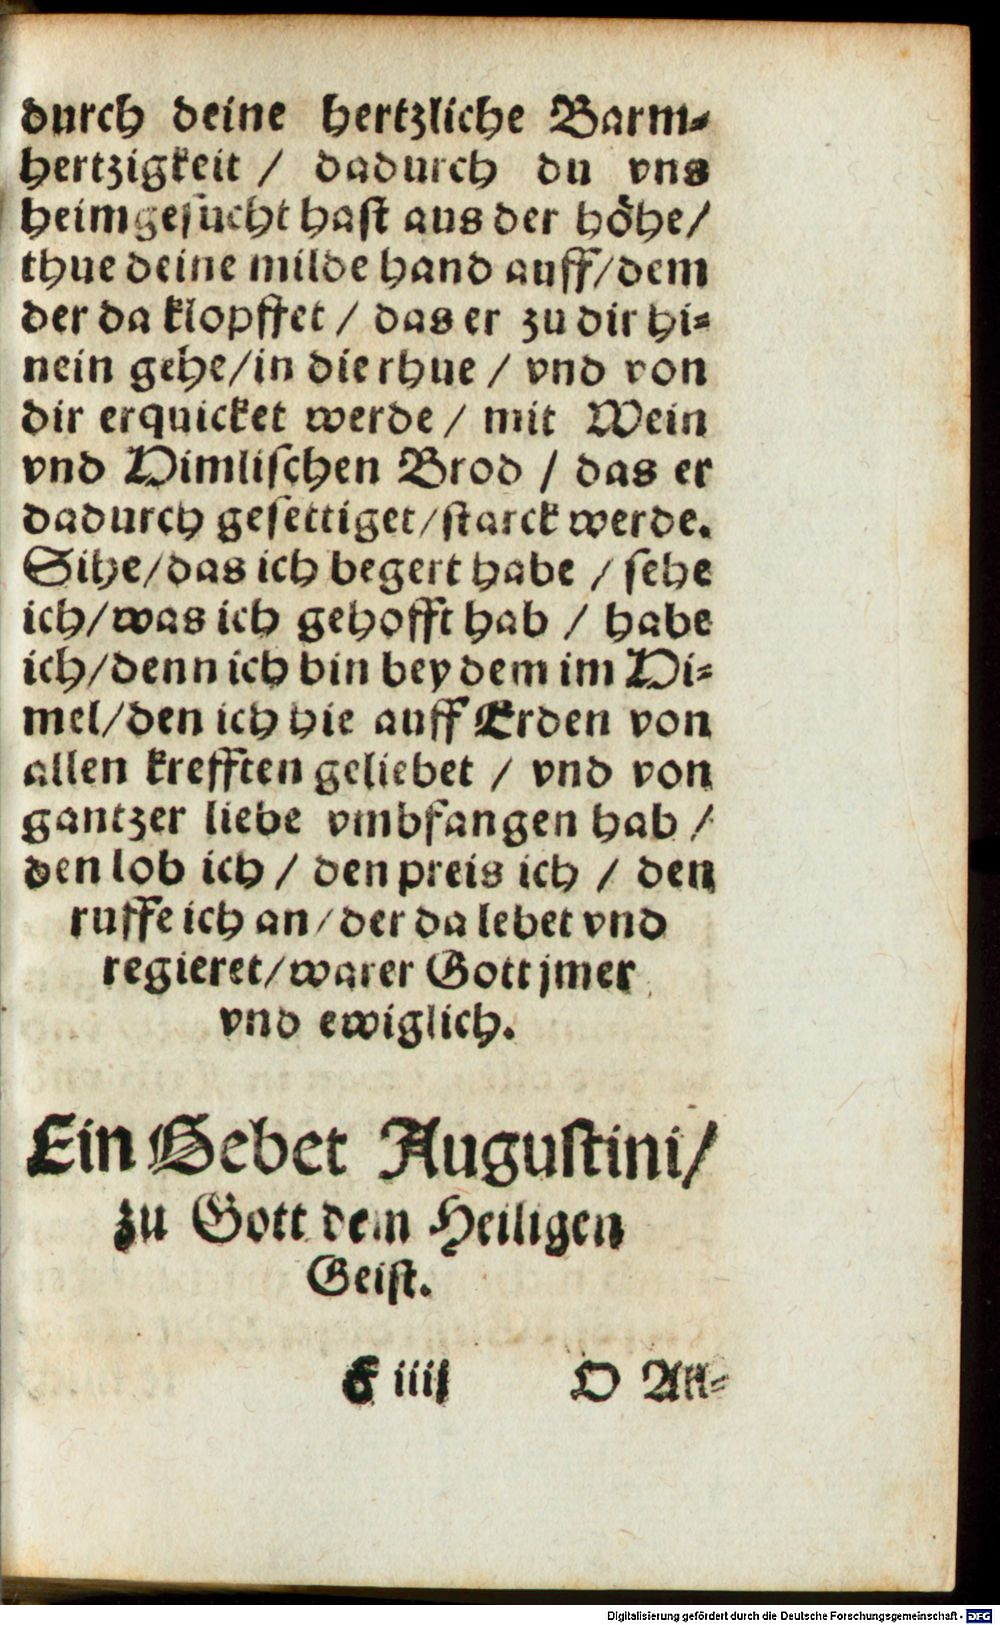 durch deine hertzliche Barm⸗
hertzigkeit / dadurch du vns
heimgesucht hast aus der höhe/
thue deine milde hand auff/dem
der da klopffet / das er zu dir hi⸗
nein gehe/in die rhue / vnd von
dir erquicket werde / mit Wein
vnd Himlischen Brod / das er
dadurch gesettiget/starck werde.
Sihe/das ich begert habe / sehe
ich/was ich gehofft hab / habe
ich/denn ich bin bey dem im Hi⸗
mel/den ich hie auff Erden von
allen krefften geliebet / vnd von
gantzer liebe vmbfangen hab /
den lob ich / den preis ich / den
ruffe ich an/der da lebet vnd
regieret/warer Gott jmer
vnd ewiglich.
Ein Gebet Augustini/
zu Gott dem Heiligen
Geist.
iiij O All⸗
Digitalisierung gefördert durch die Deutsche Forschungsgemeinschaft - DFG